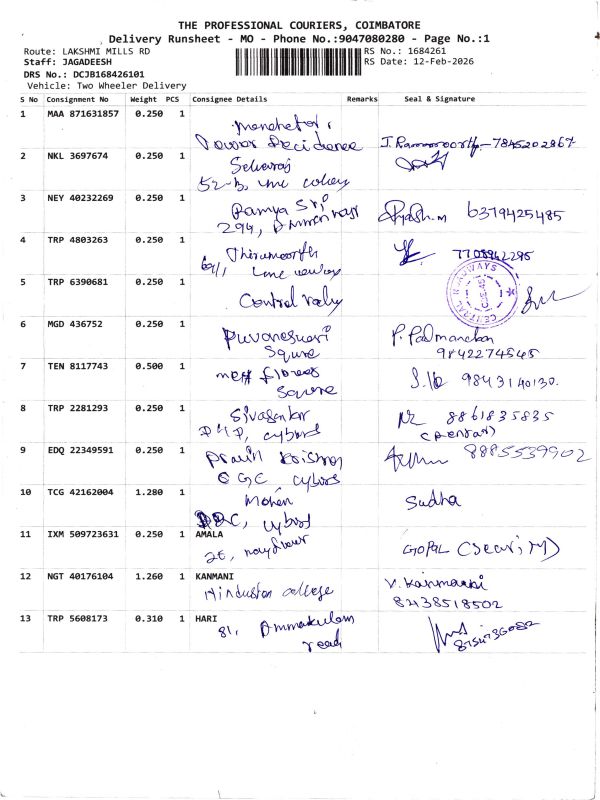 THE PROFESSIONAL COURIERS, COIMBATORE
Delivery Runsheet - MO - Phone No.:9047080280 - Page No.:1
Route: LAKSHMI MILLS RD
RS No.: 1684261
Staff: JAGADEESH
RS Date: 12-Feb-2026
DRS No.: DCJB168426101
Vehicle: Two Wheeler Delivery
S No Consignment No Weight PCS Consignee Details Remarks Seal & Signature
1 MAA 871631857 0.250 1
J. Ramamoorthy-7845202867
2 NKL 3697674 0.250 1
Selvaraj
52-b,
3 NEY 40232269 0.250 1
Ramya Sri
294,
6379425485
4 TRP 4803263 0.250 1
Thirumoorth
7708942295
5 TRP 6390681 0.250 1
Central
CENTRAL RAILWAYS
6 MGD 436752 0.250 1
Puvaneswari
Squre
P. Padmanaban
9842274545
7 TEN 8117743 0.500 1
Squre
9843140130.
8 TRP 2281293 0.250 1
Sivasankar
8861835835
9 EDQ 22349591 0.250 1
CGC, cybros
8885539902
10 TCG 42162004 1.280 1
Mohan
Sudha
11 IXM 509723631 0.250 1 AMALA
GOPAL (Security)
12 NGT 40176104 1.260 1 KANMANI
Hindustan college
V. Kanmani
82438518502
13 TRP 5608173 0.310 1 HARI
81, Ammakulam
road